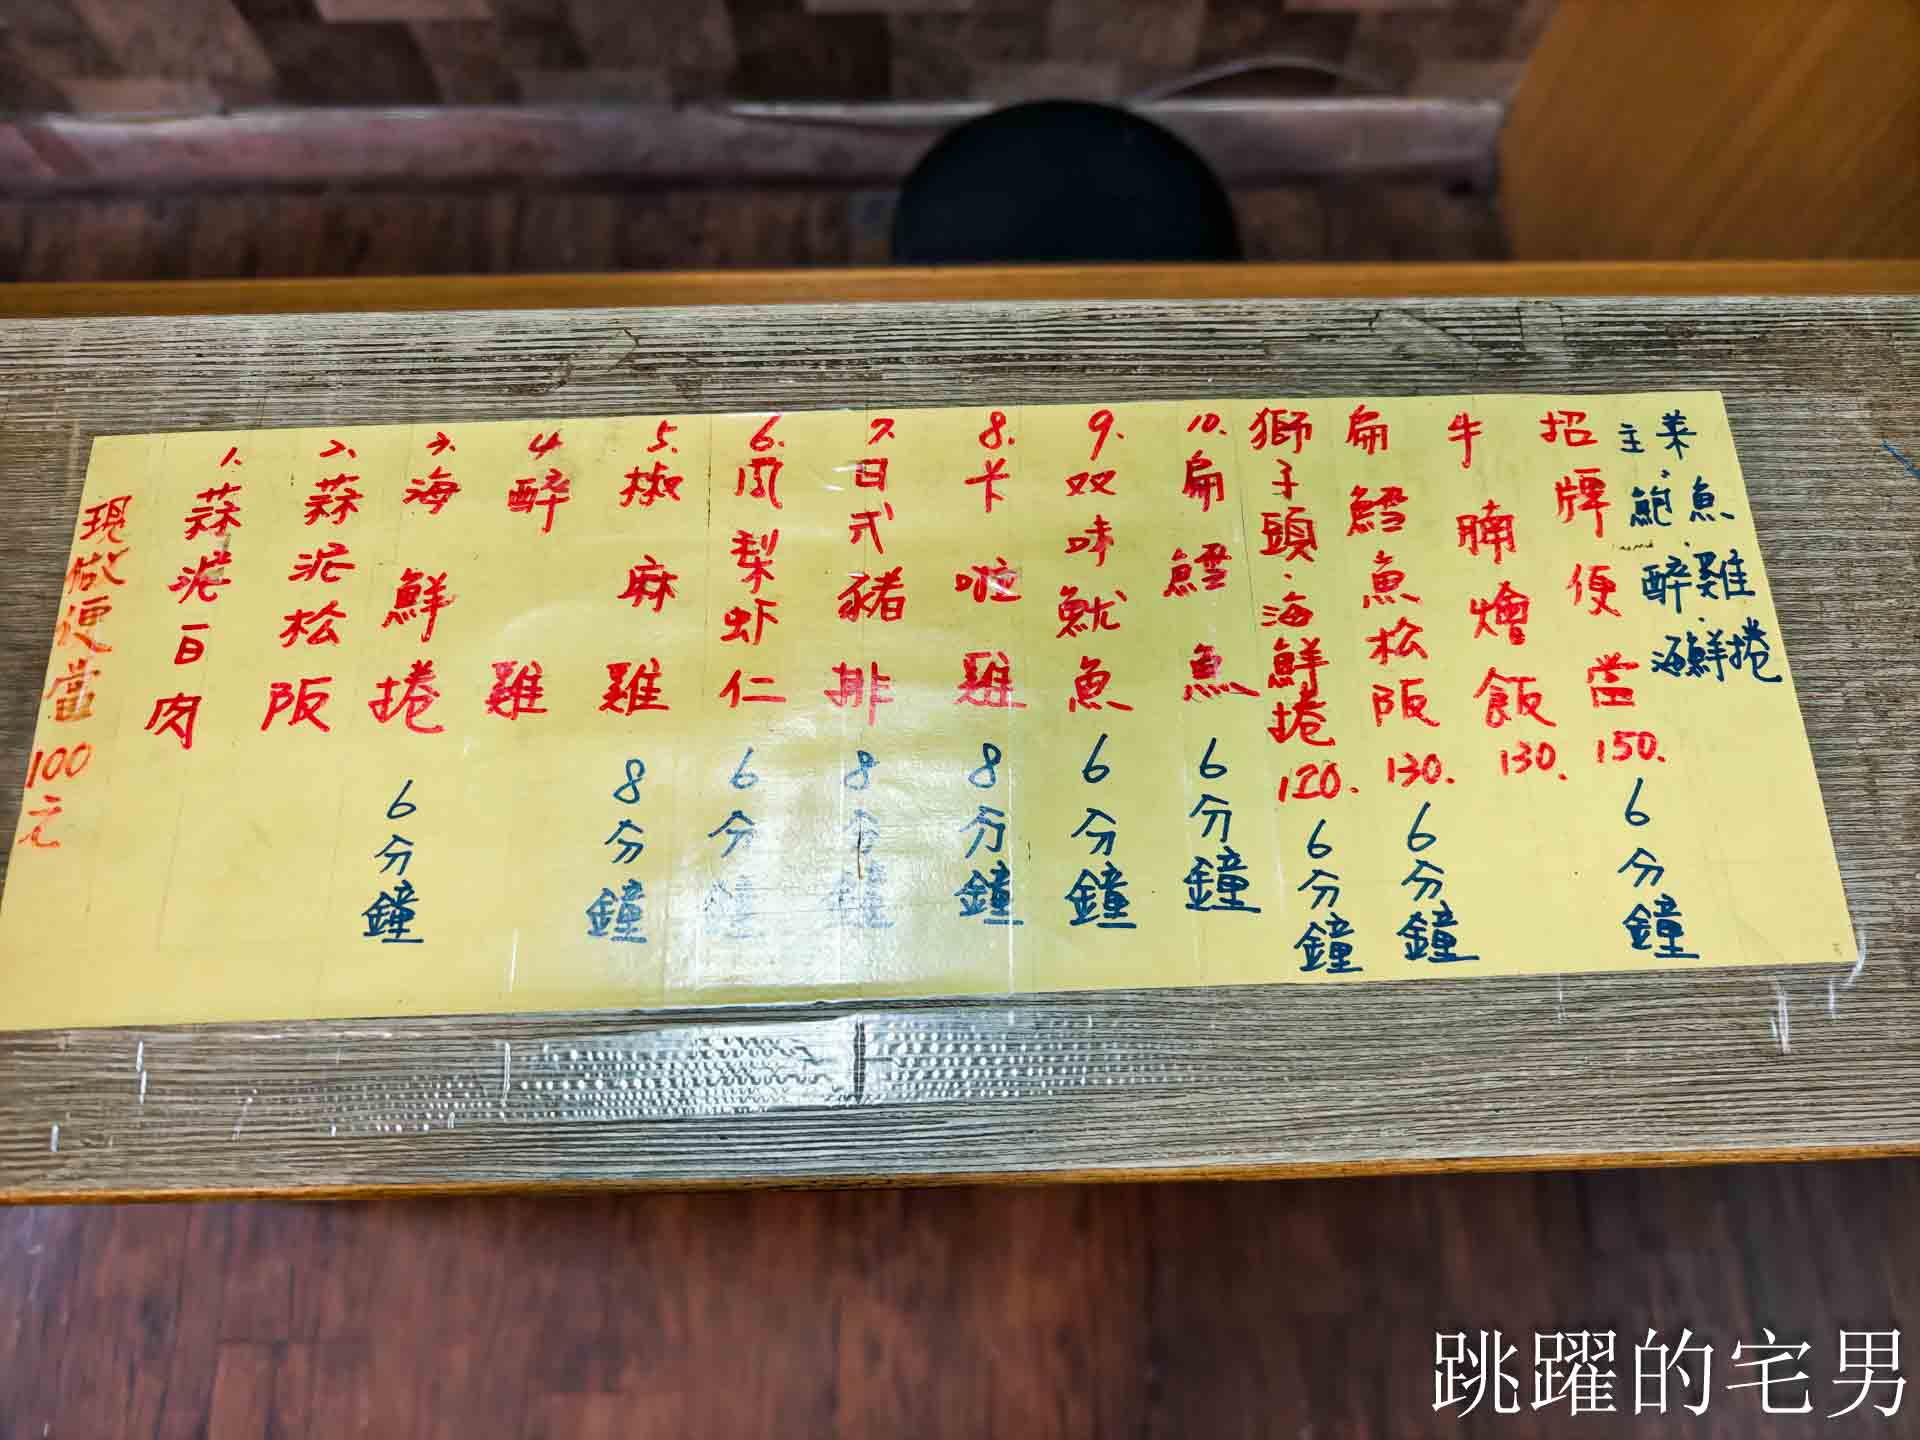 現做便當100元
1.蒜泥白肉
2.蒜泥松阪
3.海鮮捲 6分鐘
4醉雞
5.椒麻雞 8分鐘
6.鳳梨虾仁 6分鐘
7.日式豬排 8分鐘
8.卡啦雞 8分鐘
9.双味魷魚 6分鐘
10.扁鱈魚 6分鐘
獅子頭.海鮮捲120. 6分鐘
扁鱈魚松阪130. 6分鐘
牛腩燴飯130.
招牌便當150. 6分鐘
主菜.
鮑魚.
醉雞.
海鮮捲
跳躍的宅男